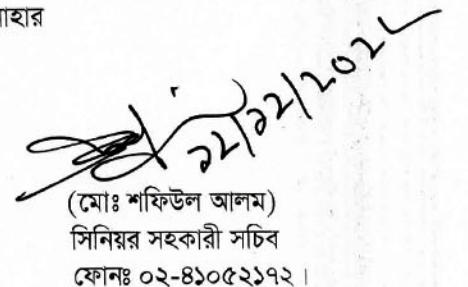 াহার
(মোঃ শফিউল আলম)
সিনিয়র সহকারী সচিব
ফোনঃ ০২-৪১০৫২১৭২।